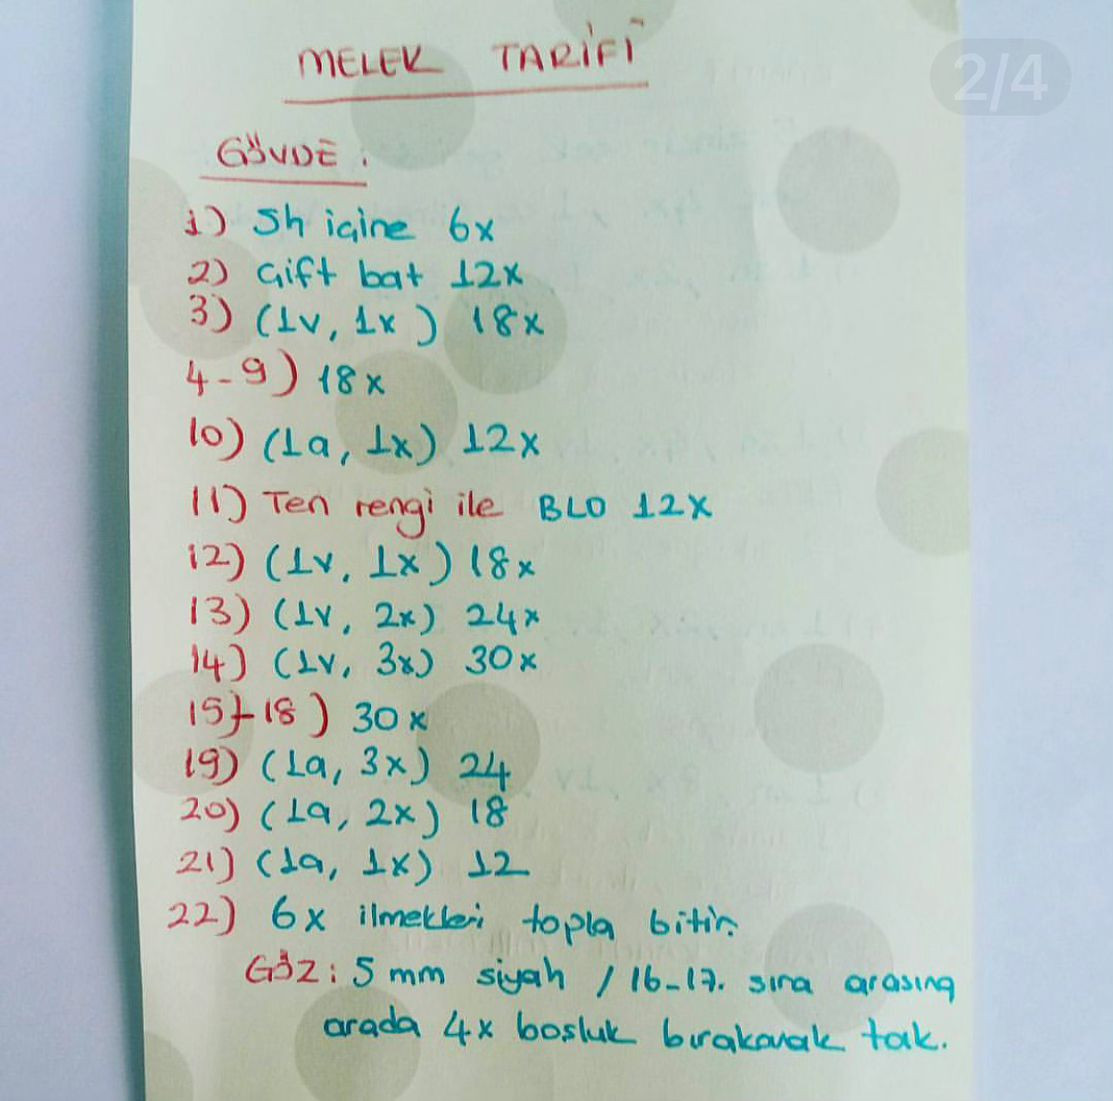 MELEK TARİFİ
2/4
GÖVDE :
1) Sh içine 6x
2) Çift bat 12x
3) (1v, 1x) 18x
4-9) 18x
10) (1a, 1x) 12x
11) Ten rengi ile BLO 12x
12) (1v, 1x) 18x
13) (1v, 2x) 24x
14) (1v, 3x) 30x
15)-18) 30x
19) (1a, 3x) 24
20) (1a, 2x) 18
21) (1a, 1x) 12
22) 6x ilmekleri topla bitir.
GÖZ : 5 mm siyah / 16-17. sıra arasına
arada 4x boşluk bırakarak tak.